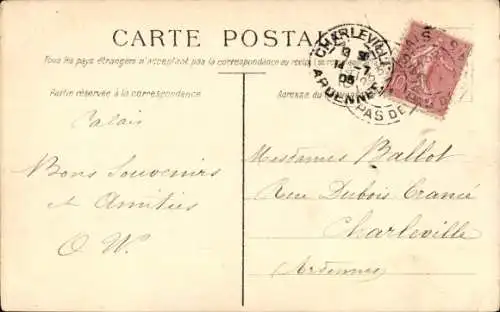 CARTE POSTALE
Tous les pays étrangers n'acceptent pas la correspondance au recto
Partie réservée à la correspondance
Adresse du
CHARLEVILLE
14 - 7
05
ARDENNES
PAS DE
Calais
Bons Souvenirs
et Amitiés
O. W.
Mesdames Ballot
Rue Dubois Crancé
Charleville
(Ardennes)